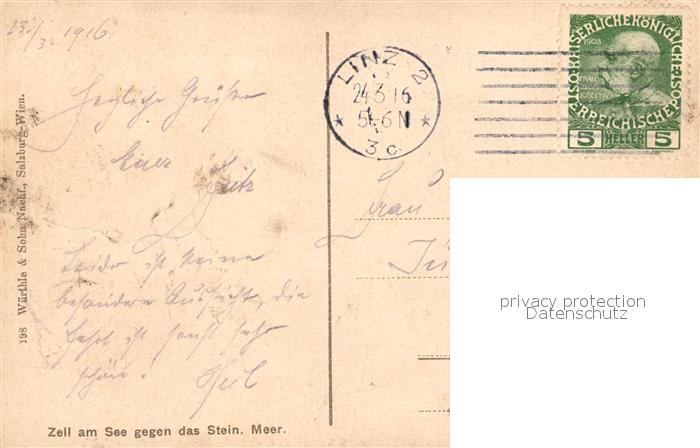 23./3. 1916
Herzliche Grüße
Euer Fritz
Leider ist keine
besondere Aussicht, die
Fahrt ist sonst sehr
schön. Heil
Zell am See gegen das Stein. Meer.
198 Würthle & Sohn Nachf., Salzburg-Wien.
LINZ 2
24.3.16
5-6N
3c
1908
KAISERLICHE KÖNIGLICHE ÖSTERREICHISCHE POST
5 HELLER 5
Frau
privacy protection
Datenschutz